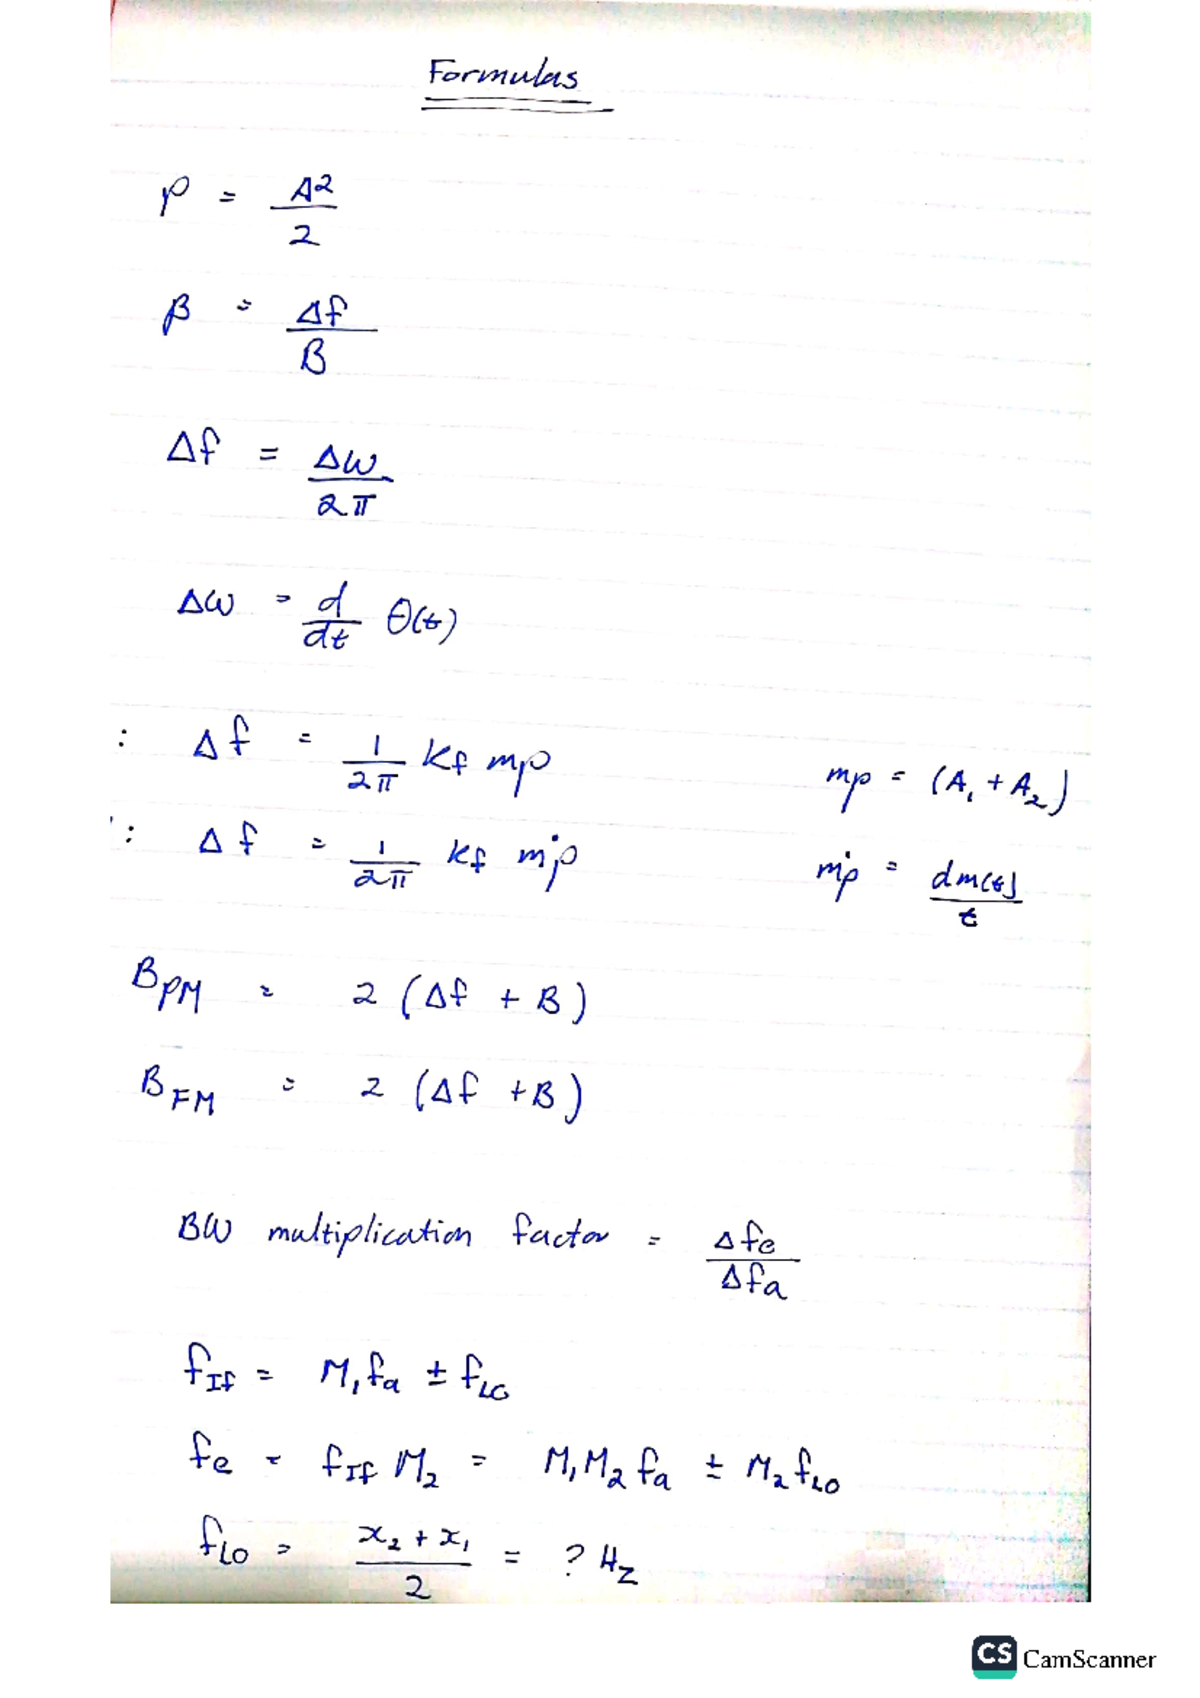 Formulas
P = A²/2
β = Δf/B
Δf = Δω/2π
Δω = d/dt θ(t)
: Δf = 1/2π kf mp    mp = (A₁ + A₂)
': Δf = 1/2π kf ṁp    ṁp = dm(t)/t
B_PM = 2 (Δf + B)
B_FM = 2 (Δf + B)
BW multiplication factor = Δfe/Δfa
f_IF = M₁fa ± f_LO
fe = f_IF M₂ = M₁M₂fa ± M₂f_LO
f_LO = (x₂ + x₁)/2 = ? Hz
CS CamScanner